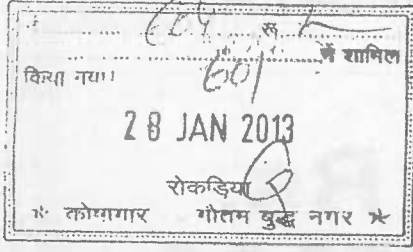 रू
में शामिल
किया गया।
28 JAN 2013
रोकड़िया
* कोषागार गौतम बुद्ध नगर *